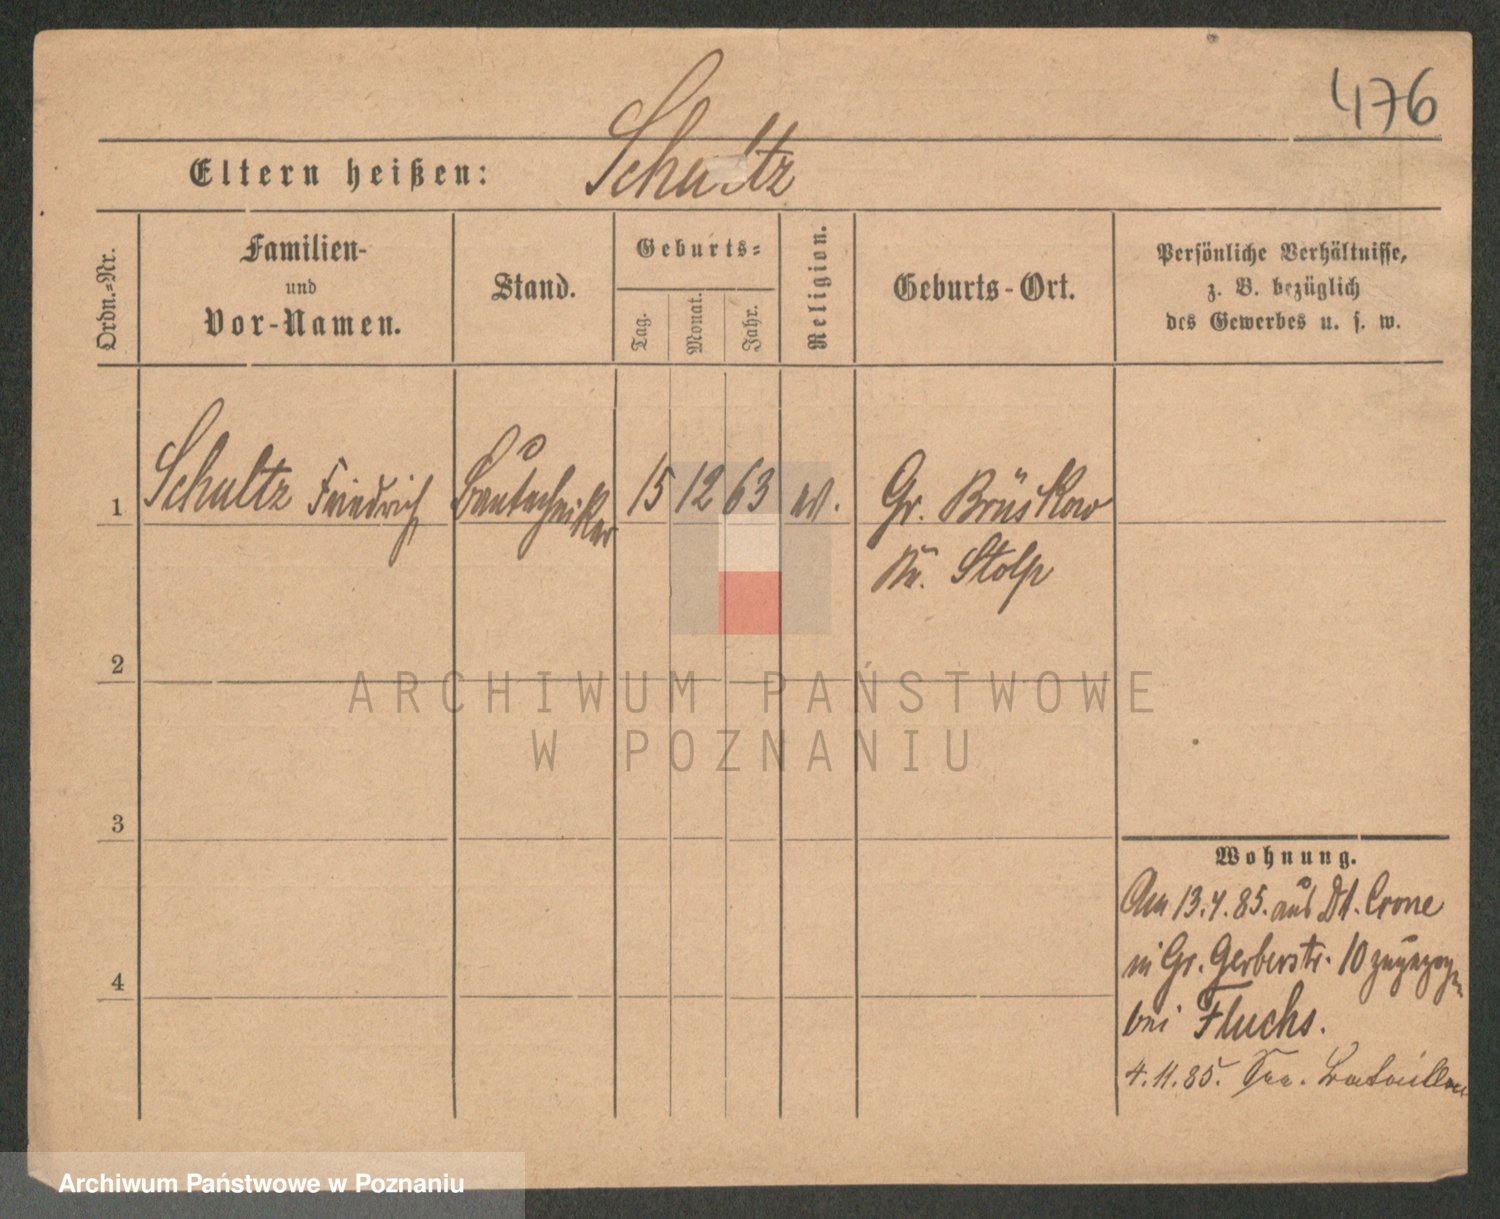 476
Schultz
Eltern heißen:
Ordn.=Nr.
Familien-
und
Vor-Namen.
Stand.
Geburts=
Tag.
Monat.
Jahr.
Religion.
Geburts-Ort.
Persönliche Verhältnisse,
z. B. bezüglich
des Gewerbes u. s. w.
1
Schultz Friedrich
Bautechniker
15
12
63
Gr. Brüskow
Kr. Stolp
2
3
4
Wohnung.
Am 13.4.85. aus Dt. Crone
in Gr. Gerberstr. 10 zugezogen
bei Fluchs.
4.11.85. Bataillon
ARCHIWUM PAŃSTWOWE
W POZNANIU
Archiwum Państwowe w Poznaniu